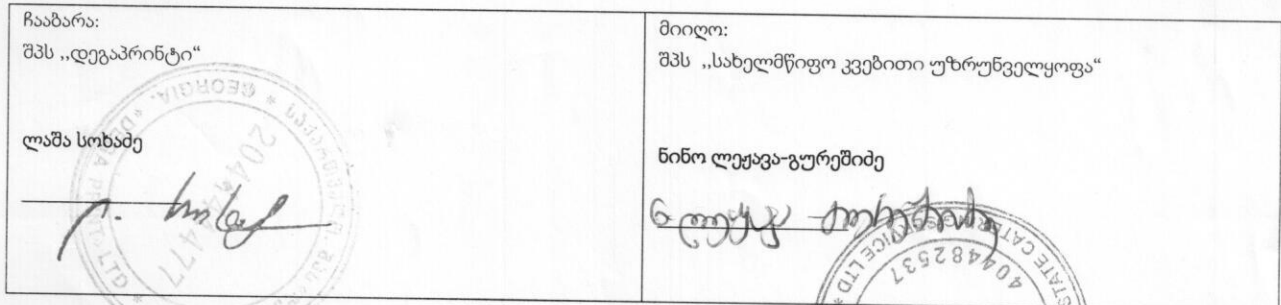 ჩააბარა:
შპს ,,დეგაპრინტი“
ლაშა სოხაძე
GEORGIA.
მიიღო:
შპს ,,სახელმწიფო კვებითი უზრუნველყოფა“
ნინო ლეჟავა-გურეშიძე
STATE CATERING SERVICE LTD
404482537